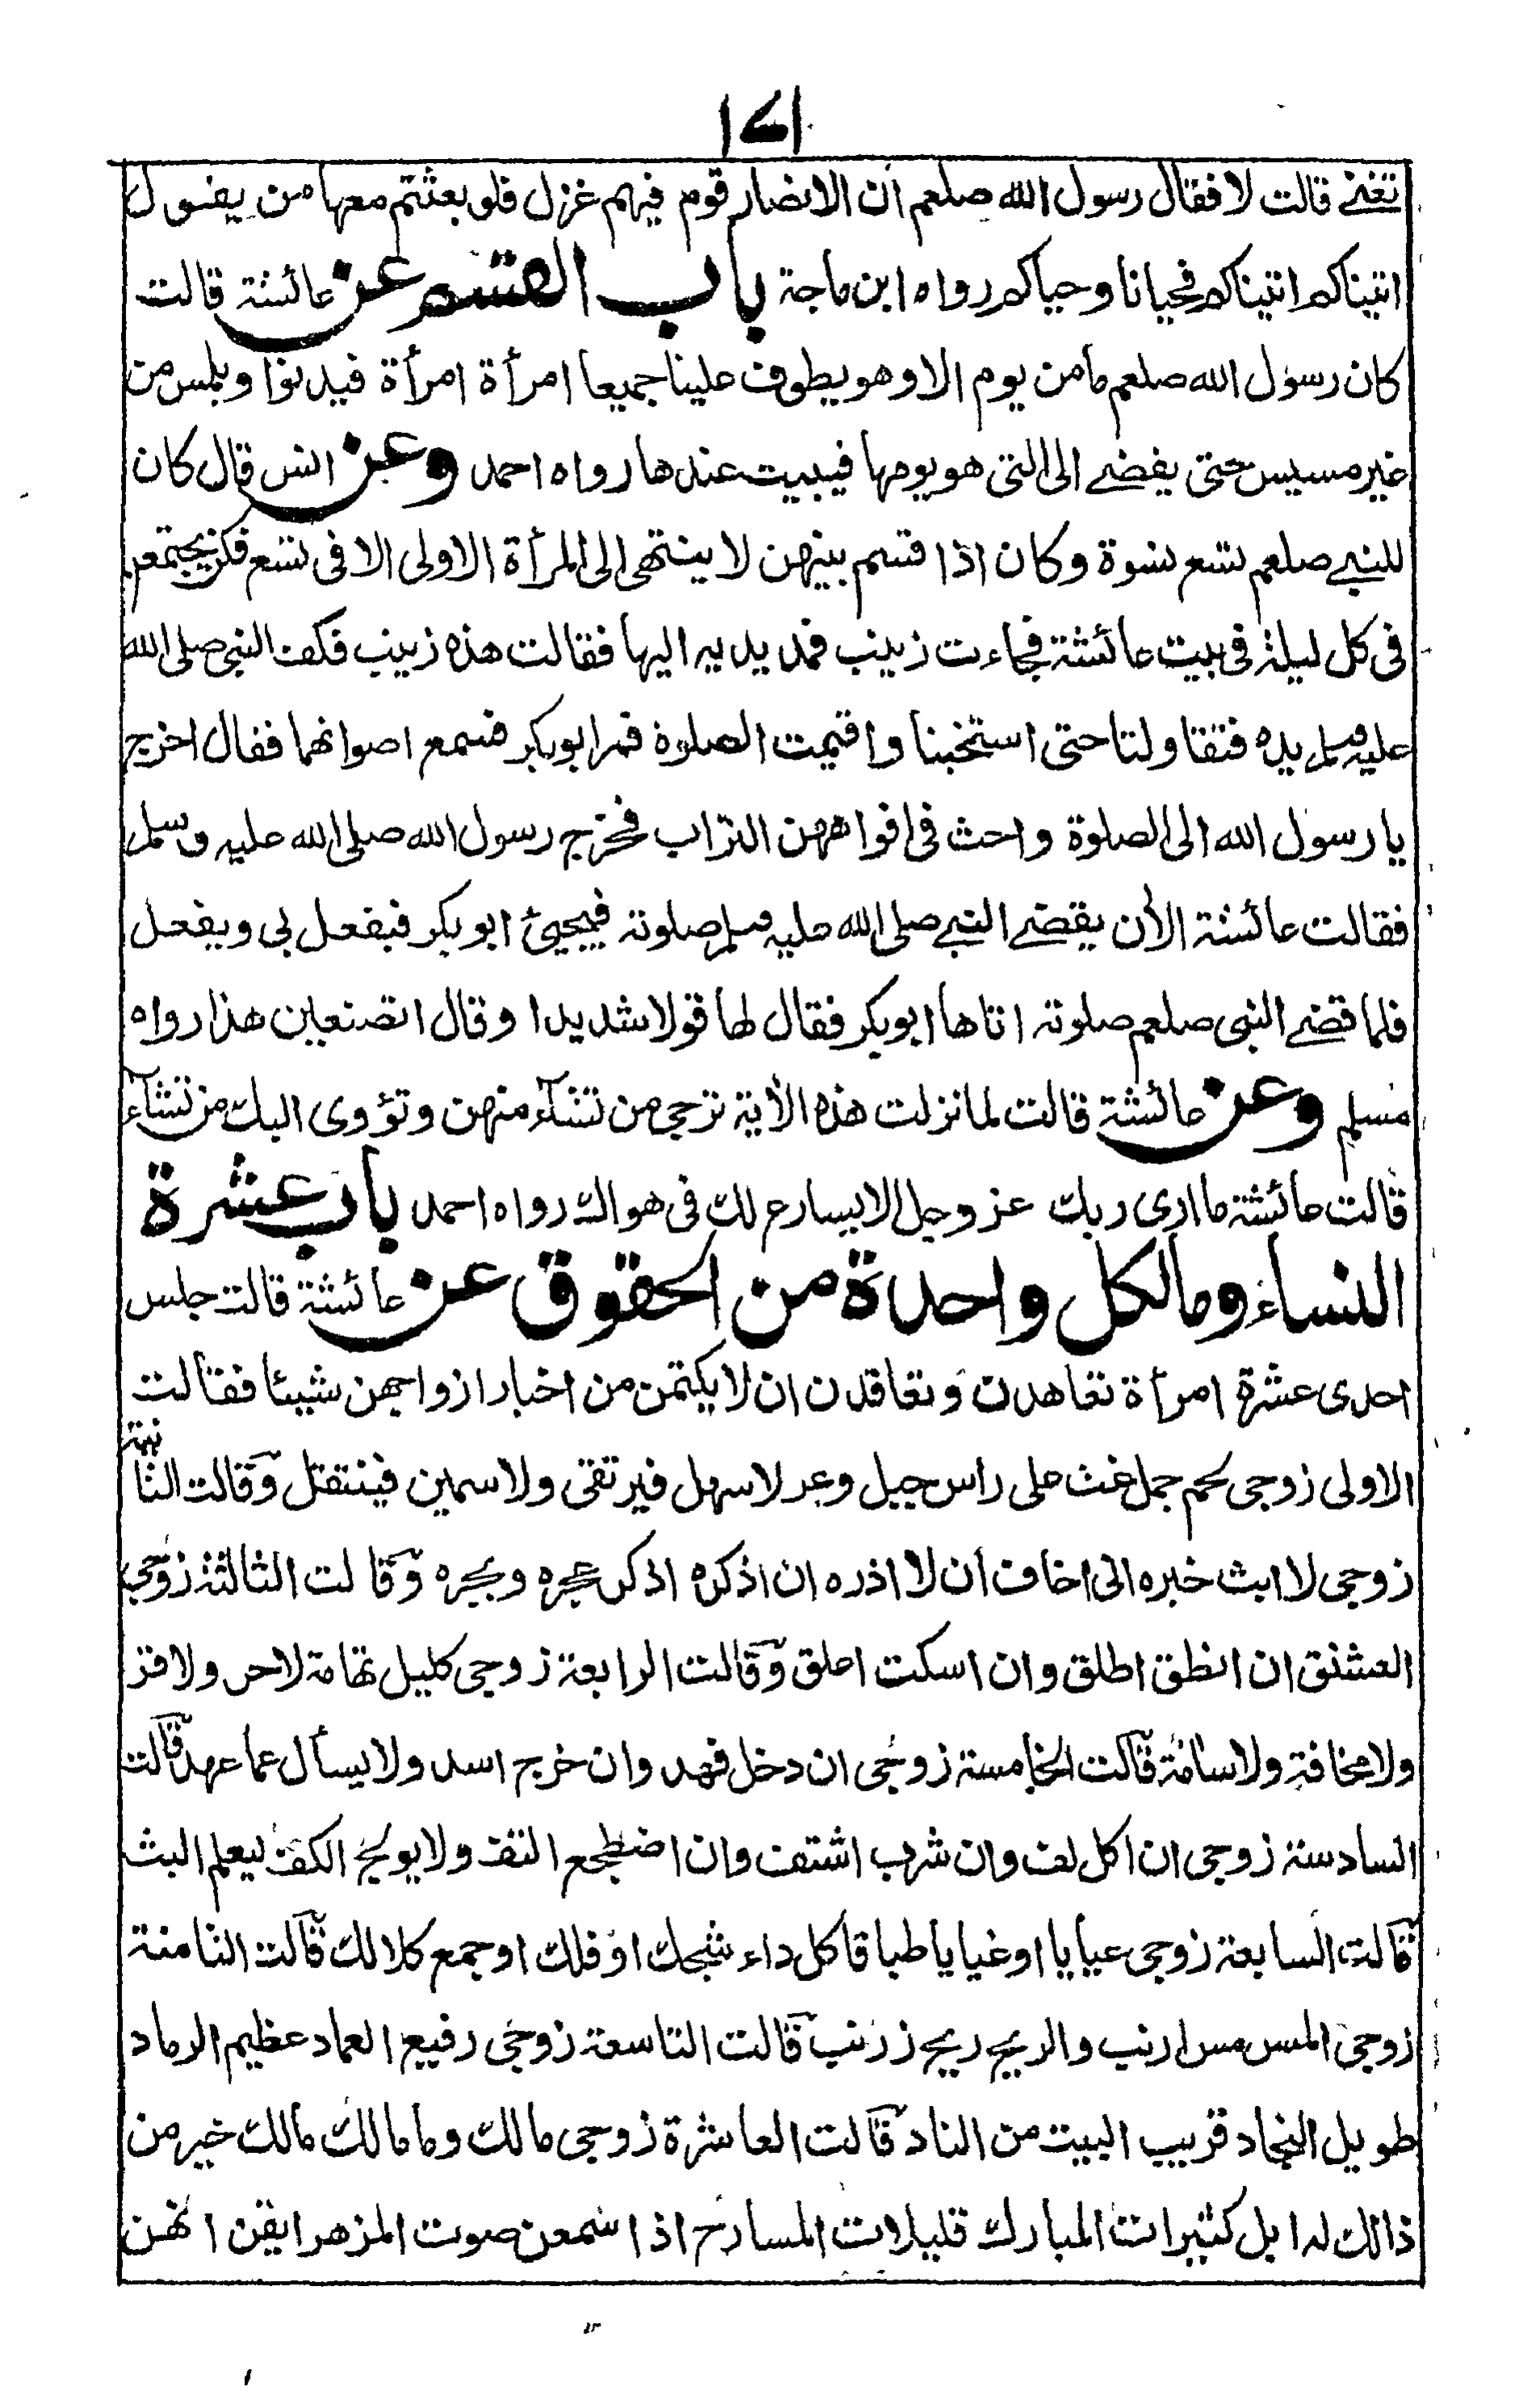 ۱۷۱
تغنى قالت لا فقال رسول الله صلعم ان الانصار قوم فيهم غزل فلو بعثتم معها من يقول
اتيناكم اتيناكم فحيانا وحياكم رواه ابن ماجة باب القسم عن عائشة قالت
كان رسول الله صلعم مامن يوم الا وهو يطوف علينا جميعا امرأة امرأة فيدنوا ويلمس من
غير مسيس حتى يفضے الى التى هو يومها فيبيت عندها رواه احمد وعن انس قال كان
للنبے صلعم تسع نسوة وكان اذا قسم بينهن لا ينتهى الى المرأة الاولى الا فى تسع فكن يجتمعن
فى كل ليلة فى بيت عائشة فجاءت زينب فمد يديه اليها فقالت هذه زينب فكف النبى صلى الله
عليه وسلم يده فتقاولتا حتى استخبتا واقيمت الصلوة فمر ابوبكر فسمع اصواتهما فقال اخرج
يا رسول الله الى الصلوة واحث فى افواههن التراب فخرج رسول الله صلى الله عليه وسلم
فقالت عائشة الأن يقضے النبے صلى الله عليه وسلم صلوته فيجيئ ابو بكر فيفعل بى ويفعل
فلما قضے النبى صلعم صلوته اتاها ابوبكر فقال لها قولا شديدا وقال اتصنعين هذا رواه
مسلم وعن عائشة قالت لما نزلت هذه الأية ترجى من تشآء منهن وتؤوى اليك من تشآء
قالت عائشة ما ارى ربك عز وجل الا يسارع لك فى هواك رواه احمد باب عشرة
النساء ومالكل واحدة من الحقوق عن عائشة قالت جلس
احدى عشرة امرأة تعاهدن وتعاقدن ان لا يكتمن من اخبار ازواجهن شيئا فقالت
الاولى زوجى لحم جمل غث على راس جبل وعر لا سهل فيرتقى ولا سمين فينتقل وقالت الثانية
زوجى لا ابث خبره انى اخاف ان لا اذره ان اذكره اذكر عجره وبجره وقالت الثالثة زوجى
العشنق ان انطق اطلق وان اسكت اعلق وقالت الرابعة زوجى كليل تهامة لاحر ولا قر
ولا مخافة ولا سامة قالت الخامسة زوجى ان دخل فهد وان خرج اسد ولا يسأل عما عهد قالت
السادسة زوجى ان اكل لف وان شرب اشتف وان اضطجع التف ولا يولج الكف ليعلم البث
قالت السابعة زوجى عيايا او غيايا طباقا كل داء شجك او فلك او جمع كلالك قالت الثامنة
زوجى المس مس ارنب والريح ريح زرنب قالت التاسعة زوجى رفيع العماد عظيم الرماد
طويل النجاد قريب البيت من الناد قالت العاشرة زوجى مالك وما مالك مالك خير من
ذالك له ابل كثيرات المبارك قليلات المسارح اذا سمعن صوت المزهر ايقن انهن